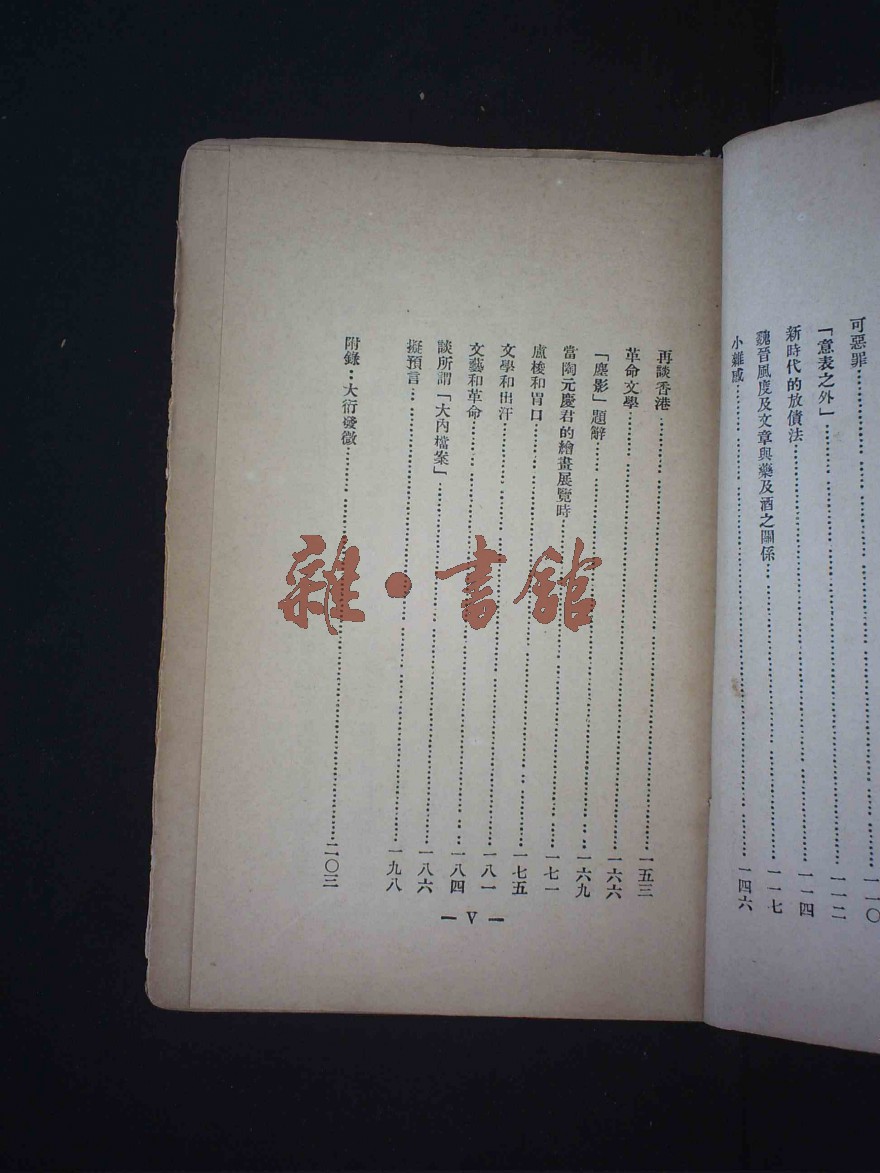 可惡罪……一一〇
「意表之外」……一一二
新時代的放債法……一一四
魏晉風度及文章與藥及酒之關係……一一七
小雜感……一四六
再談香港……一五三
革命文學……一六六
「塵影」題辭……一六九
當陶元慶君的繪畫展覽時……一七一
盧梭和胃口……一七五
文學和出汗……一八一
文藝和革命……一八四
談所謂「大內檔案」……一八六
擬預言……一九八
附錄：大衍發微……二〇三
— V —
雜·書館